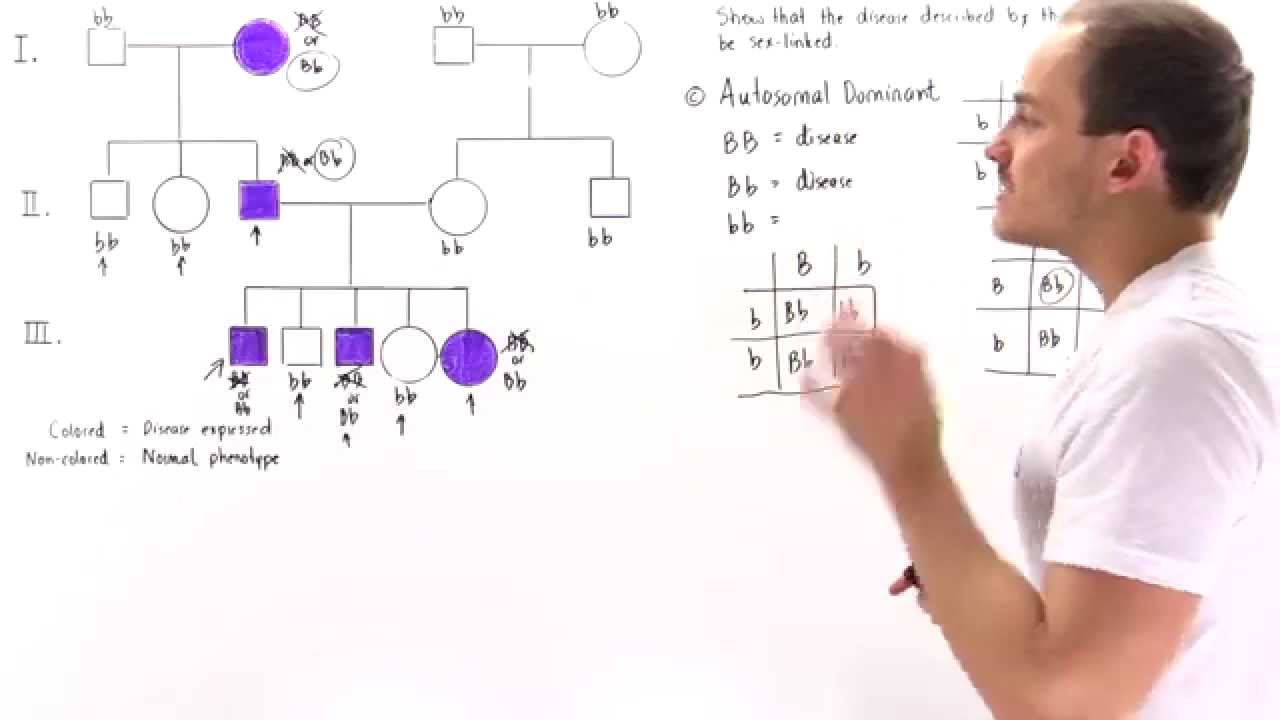 bb
BB
or
Bb
bb
bb
I.
BB or Bb
II.
bb
bb
bb
bb
III.
BB
or
Bb
bb
BB
or
Bb
bb
BB
or
Bb
Colored = Disease expressed
Non-colored = Normal phenotype
Show that the disease described by th
be sex-linked.
© Autosomal Dominant
BB = disease
Bb = disease
bb =
B b
b Bb bb
b Bb
b
b
B Bb
b Bb